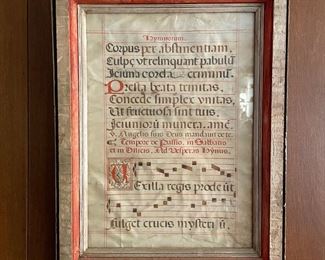 Hymnorum.
Corpus per abstinentiam,
Culpę vt relinquant pabulū
Ieiuna corda criminū.
Pręsta beata trinitas,
Concede simplex vnitas,
Vt fructuosa sint tuis,
Ieiuniorū munera. amē
Angelis suis Deus mandauit de te.
Tempore de Passio. in Sabbatis
et in Diebus, Ad Vesperas Hymnus.
Vexilla regis prodeūt
fulget crucis mysteriū.